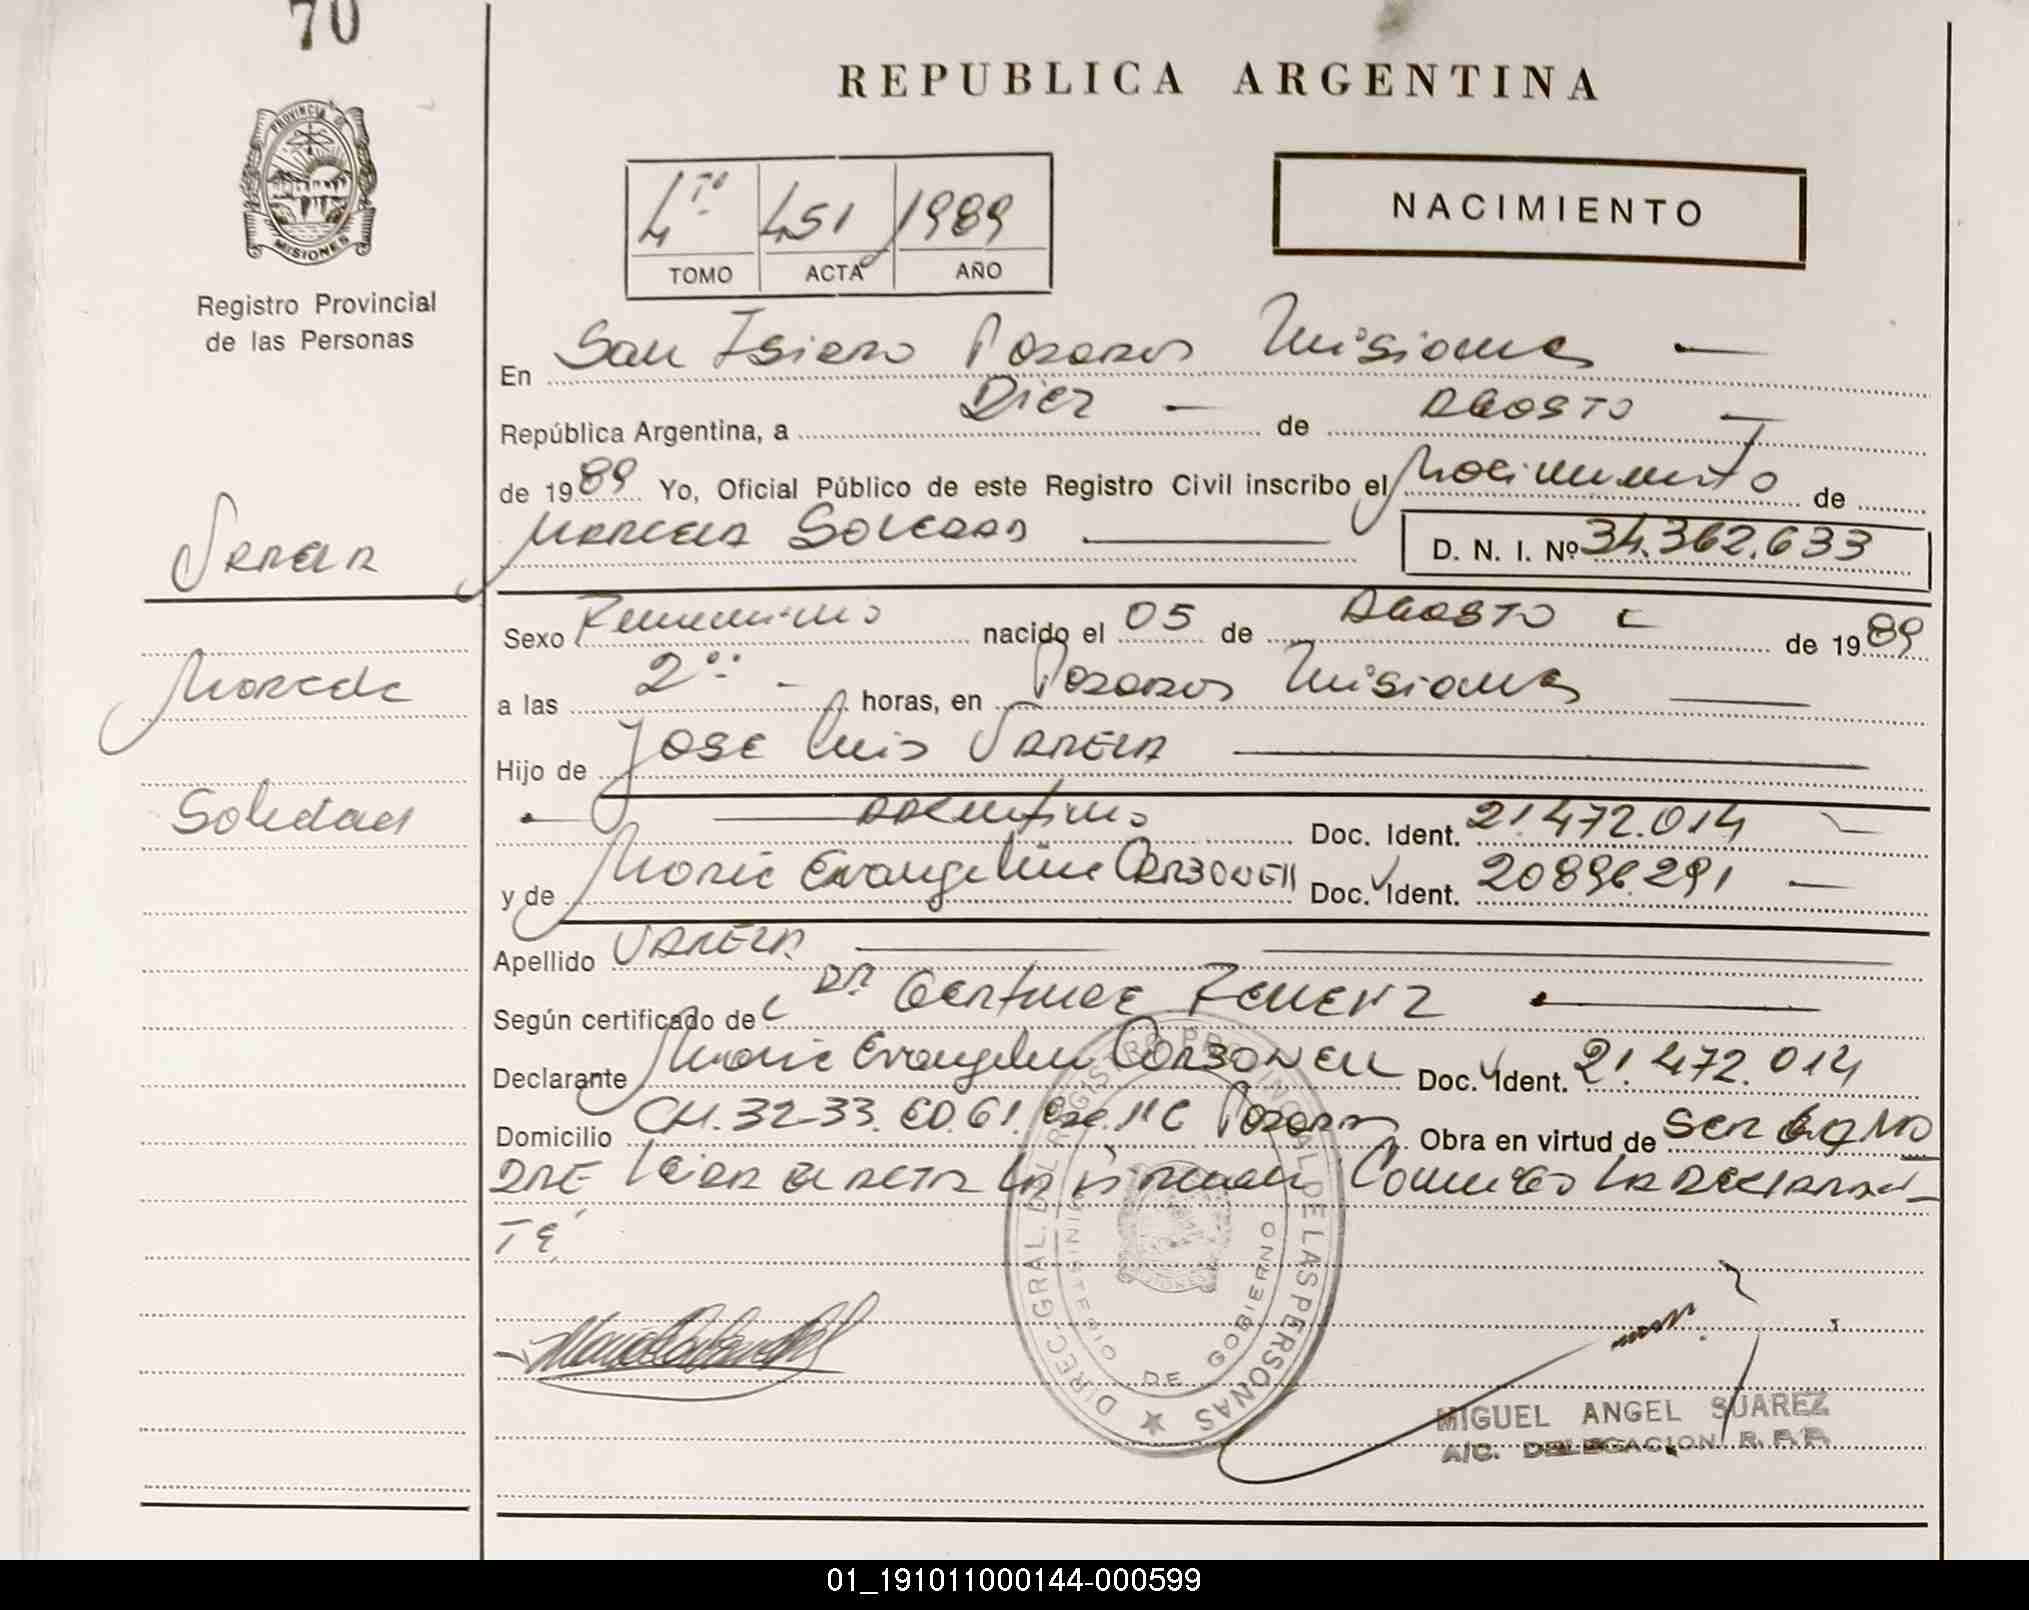 70
REPUBLICA ARGENTINA
PROVINCIA DE MISIONES
Registro Provincial
de las Personas
4to 451 1989
TOMO ACTA AÑO
NACIMIENTO
En San Isidro Posadas Misiones
República Argentina, a Diez de Agosto
de 1989 Yo, Oficial Público de este Registro Civil inscribo el Nacimiento de
Marcela Soledad D. N. I. Nº 34.362.633
Varela
Marcela
Soledad
Sexo Femenino nacido el 05 de Agosto de 1989
a las horas, en Posadas Misiones
Hijo de Jose Luis Varela
Argentino Doc. Ident. 21.472.014
y de Maria Evangelina Doc. Ident. 20896.291
Apellido Varela
Según certificado de Dra
Declarante Maria Evangelina Doc. Ident. 21.472.014
Domicilio CH. 32-33. ED. 61. Posadas Obra en virtud de Ser la Ma
dre Leida el acta la firman Conmigo la declaran
te
DIREC. GRAL. DEL REGISTRO PROVINCIAL DE LAS PERSONAS
MINISTERIO DE GOBIERNO
MIGUEL ANGEL SUAREZ
A/C. DELEGACION R. P. P.
01_191011000144-000599